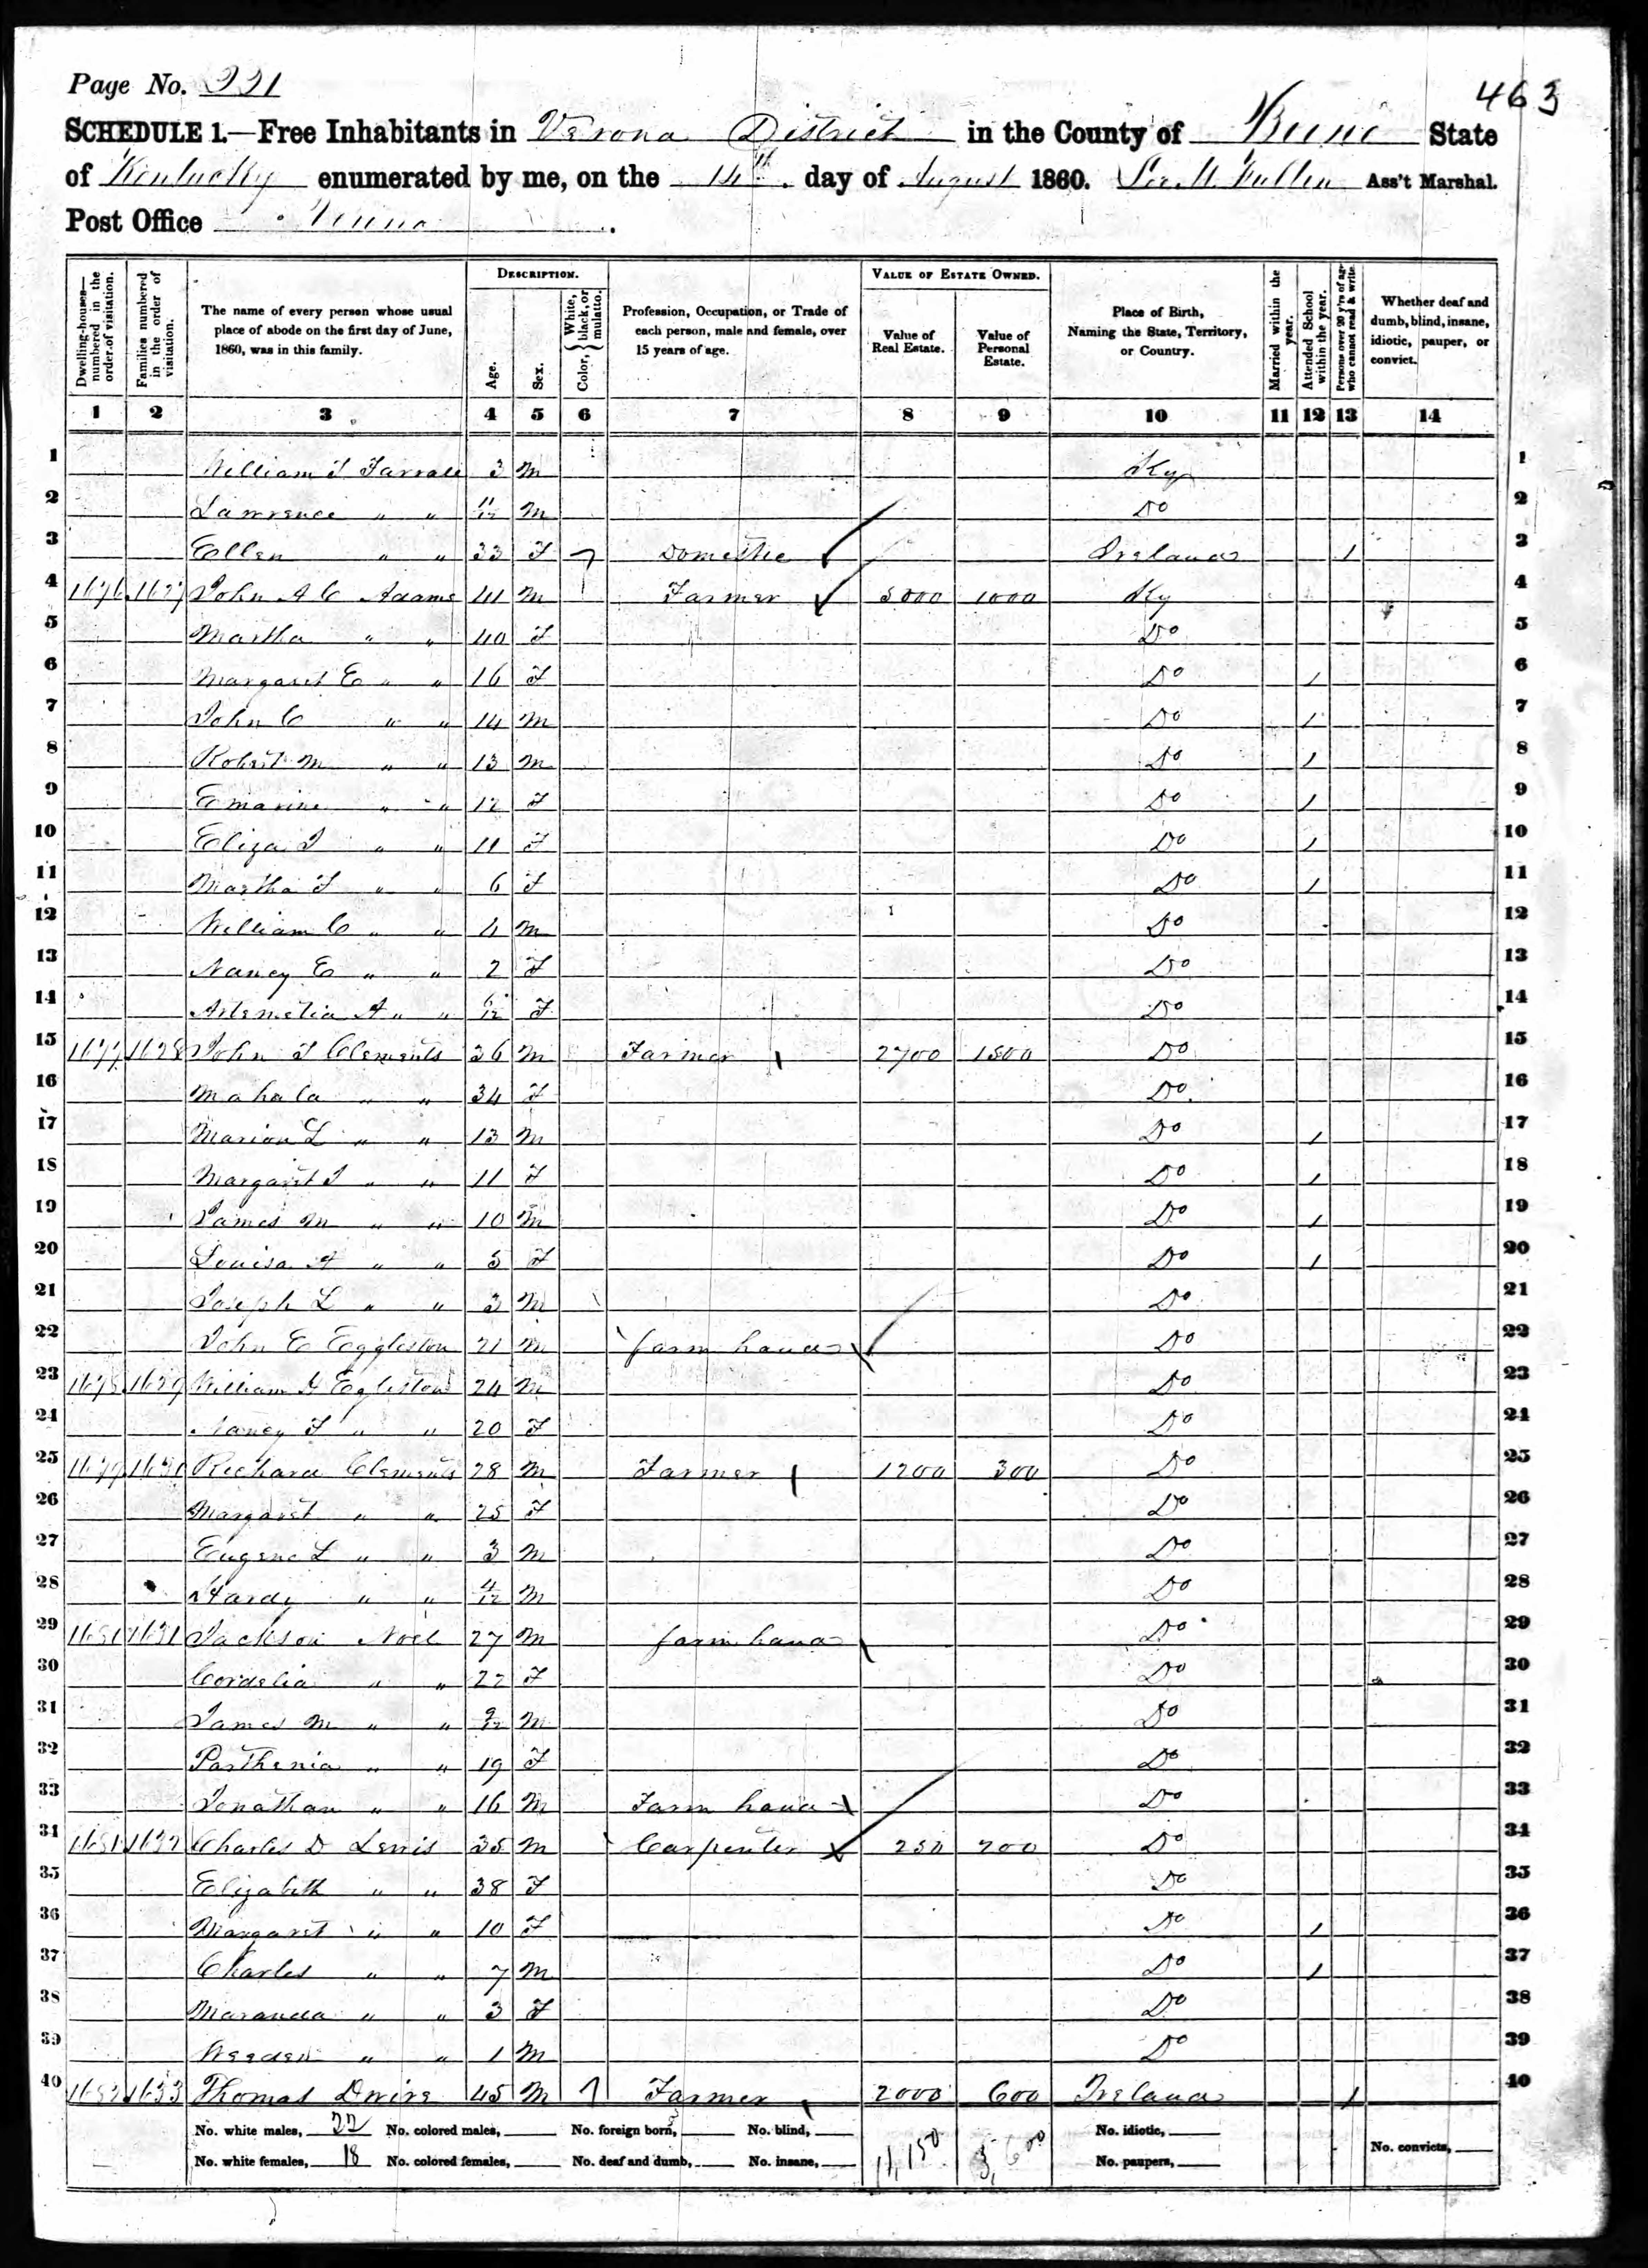 Page No. 221
463
SCHEDULE 1.—Free Inhabitants in Verona District in the County of Boone State
of Kentucky enumerated by me, on the 14th. day of August 1860. Ass't Marshal.
Post Office Verona.
Dwelling-houses—numbered in the order of visitation.
Families numbered in the order of visitation.
The name of every person whose usual place of abode on the first day of June, 1860, was in this family.
DESCRIPTION.
Age.
Sex.
Color, { White, black, or mulatto.
Profession, Occupation, or Trade of each person, male and female, over 15 years of age.
VALUE OF ESTATE OWNED.
Value of Real Estate.
Value of Personal Estate.
Place of Birth, Naming the State, Territory, or Country.
Married within the year.
Attended School within the year.
Persons over 20 y'rs of age who cannot read & write.
Whether deaf and dumb, blind, insane, idiotic, pauper, or convict.
1 2 3 4 5 6 7 8 9 10 11 12 13 14
1 William J Farrale 3 M Ky 1
2 Lawrence " " 11/12 M Do 2
3 Ellen " " 33 F 7 Domestic Ireland 1 3
4 1676 1627 John A C Adams 41 M Farmer 5000 1000 Ky 4
5 Martha " " 40 F Do 5
6 Margaret E " " 16 F Do 1 6
7 John C " " 14 M Do 1 7
8 Robert M " " 13 M Do 1 8
9 Emarine " " 12 F Do 1 9
10 Eliza J " " 11 F Do 1 10
11 Martha F " " 6 F Do 1 11
12 William C " " 4 M Do 12
13 Nancy E " " 2 F Do 13
14 Artemelia A " " 6/12 F Do 14
15 1677 1628 John T Clements 36 M Farmer 2700 1500 Do 15
16 Mahala " " 34 F Do 16
17 Marion L " " 13 M Do 1 17
18 Margaret J " " 11 F Do 1 18
19 James M " " 10 M Do 1 19
20 Louisa A " " 5 F Do 1 20
21 Joseph L " " 3 M Do 21
22 John E Eggleston 21 M farm hand Do 22
23 1678 1629 William H Eggleston 24 M Do 23
24 Nancy F " " 20 F Do 24
25 1679 1630 Richard Clements 28 M Farmer 1200 300 Do 25
26 Margaret " " 25 F Do 26
27 Eugene L " " 3 M Do 27
28 Hardy " " 4/12 M Do 28
29 1680 1631 Jackson Noel 27 M farm hand Do 29
30 Cordelia " " 22 F Do 30
31 James M " " 9/12 M Do 31
32 Parthenia " " 19 F Do 32
33 Jonathan " " 16 M Farm hand Do 33
34 1681 1632 Charles D Lewis 35 M Carpenter 250 200 Do 34
35 Elizabeth " " 38 F Do 35
36 Margaret " " 10 F Do 1 36
37 Charles " " 7 M Do 1 37
38 Maranda " " 3 F Do 38
39 Weeden " " 1 M Do 39
40 1682 1633 Thomas Dwire 45 M 7 Farmer 2000 600 Ireland 1 40
No. white males, 22 No. colored males, No. foreign born, No. blind, 11,150 3,600 No. idiotic,
No. white females, 18 No. colored females, No. deaf and dumb, No. insane, No. paupers, No. convicts,